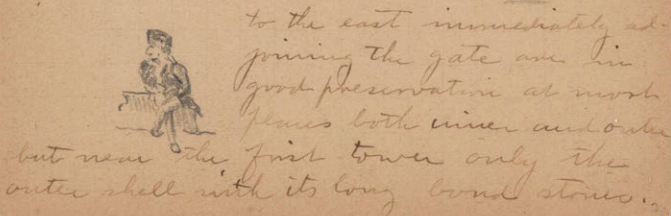 to the east immediately ad-
joining the gate are in
good preservation at most
places both inner and outer
but near the first tower only the
outer shell with its long bond stones.